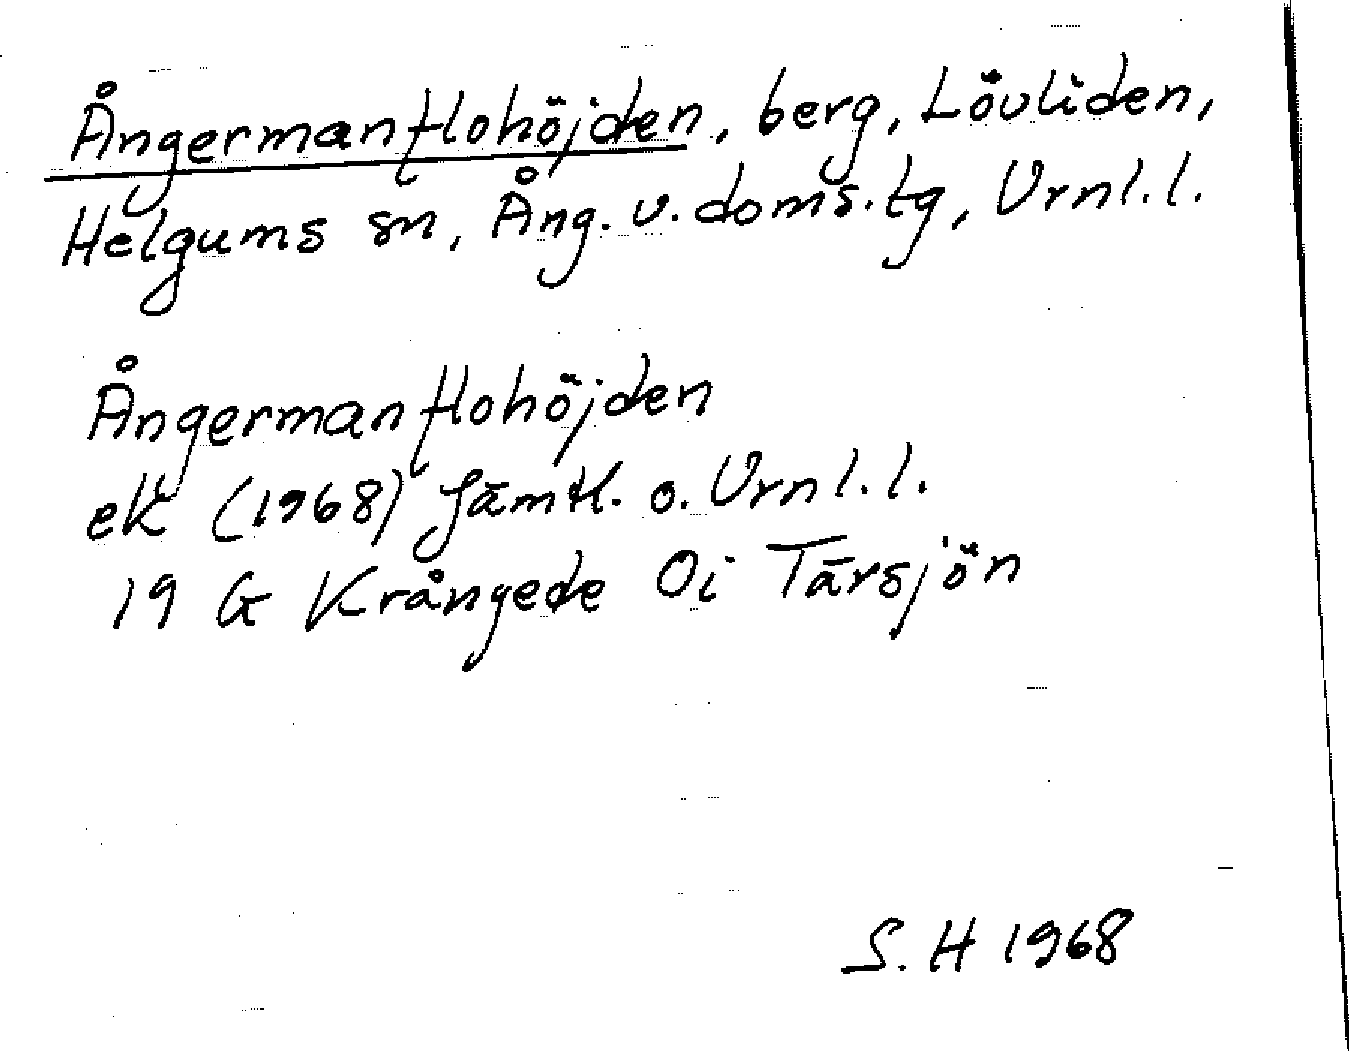 Ångermanflohöjden, berg, Lövliden,
Helgums sn, Ång. v. doms.tg, Vrnl.l.
Ångermanflohöjden
ek (1968) Jämtl. o. Vrnl.l.
19 G Krångede Oi Tärsjön
S. H 1968